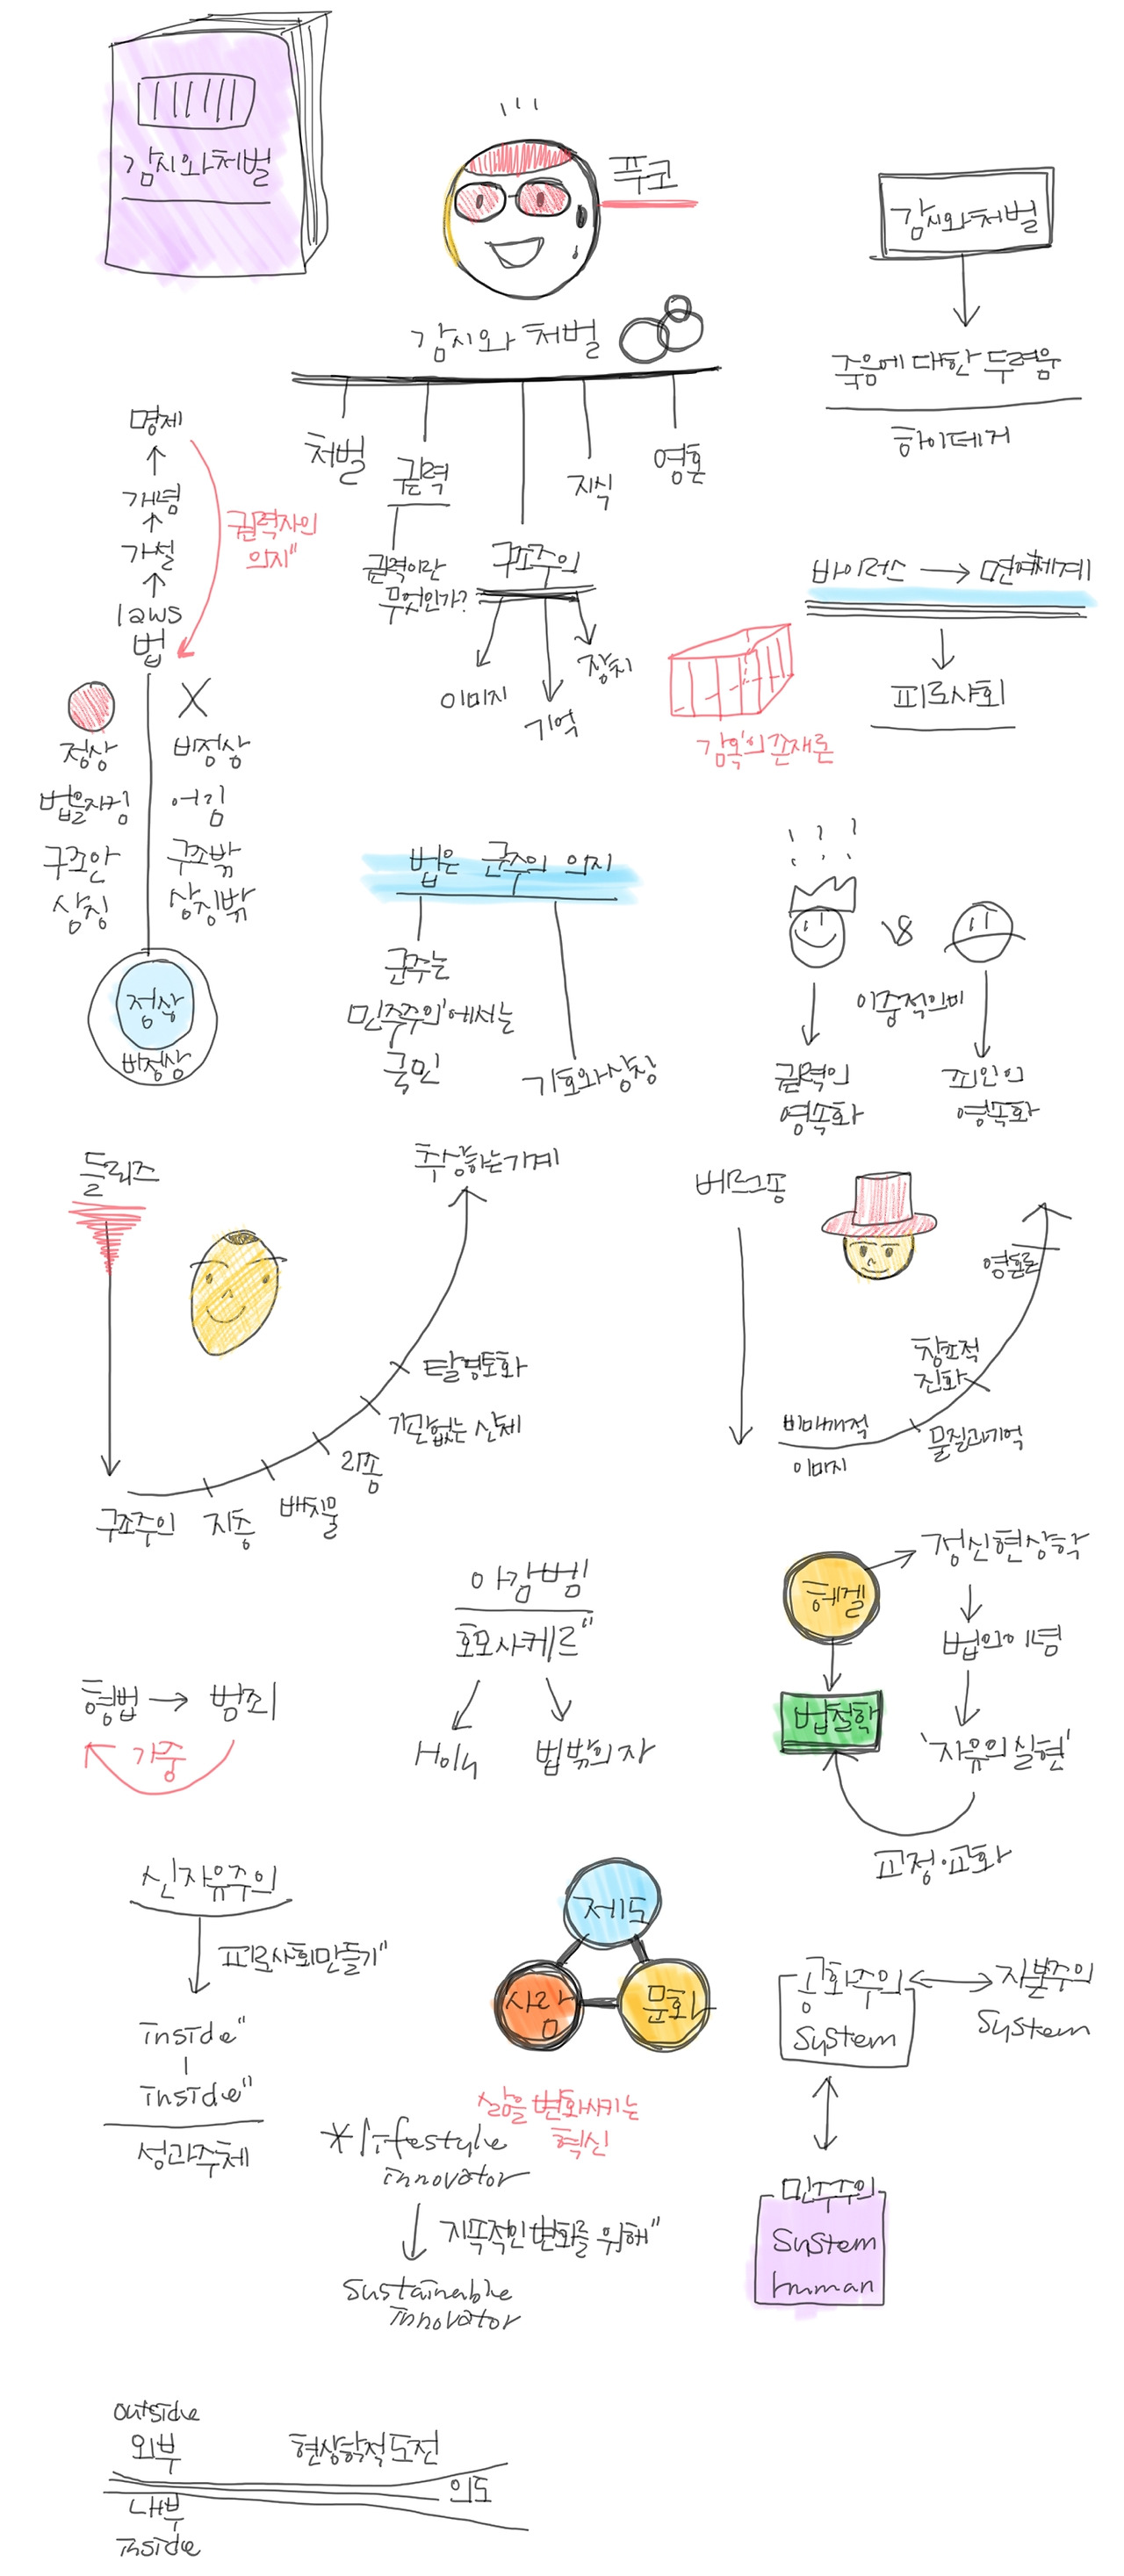 감시와처벌
푸코
감시와처벌
감시와 처벌
죽음에 대한 두려움
하이데거
처벌
권력
지식
영혼
권력이란
무엇인가?
구조주의
이미지
기억
장치
명제
개념
가설
laws
법
권력자의
의지"
정상
비정상
법을지킴
어김
구조안
구조밖
상징
상징밖
정상
비정상
바이러스 → 면역체계
피로사회
감옥의 존재론
법은 군주의 의지
군주는
민주주의'에서는
국민
기호와상징
VS
이중적의미
권력의
영속화
죄인의
영속화
들뢰즈
추상하는기계
탈영토화
기관없는 신체
리좀
배치물
지층
구조주의
베르그송
영혼론
창조적
진화
물질과기억
비매개적
이미지
아감벤
호모사케르"
Holy
법밖의 자
헤겔
정신현상학
법의이념
'자유의실현'
법철학
교정·교화
형법 → 범죄
가중
신자유주의
피로사회만들기"
inside"
inside"
성과주체
제도
사람
문화
삶을 변화시키는
혁신
*lifestyle
innovator
지속적인 변화를 위해"
Sustainable
innovator
공화주의
System
자본주의
System
민주주의
System
human
outside
외부
현상학적도전
의도
내부
inside